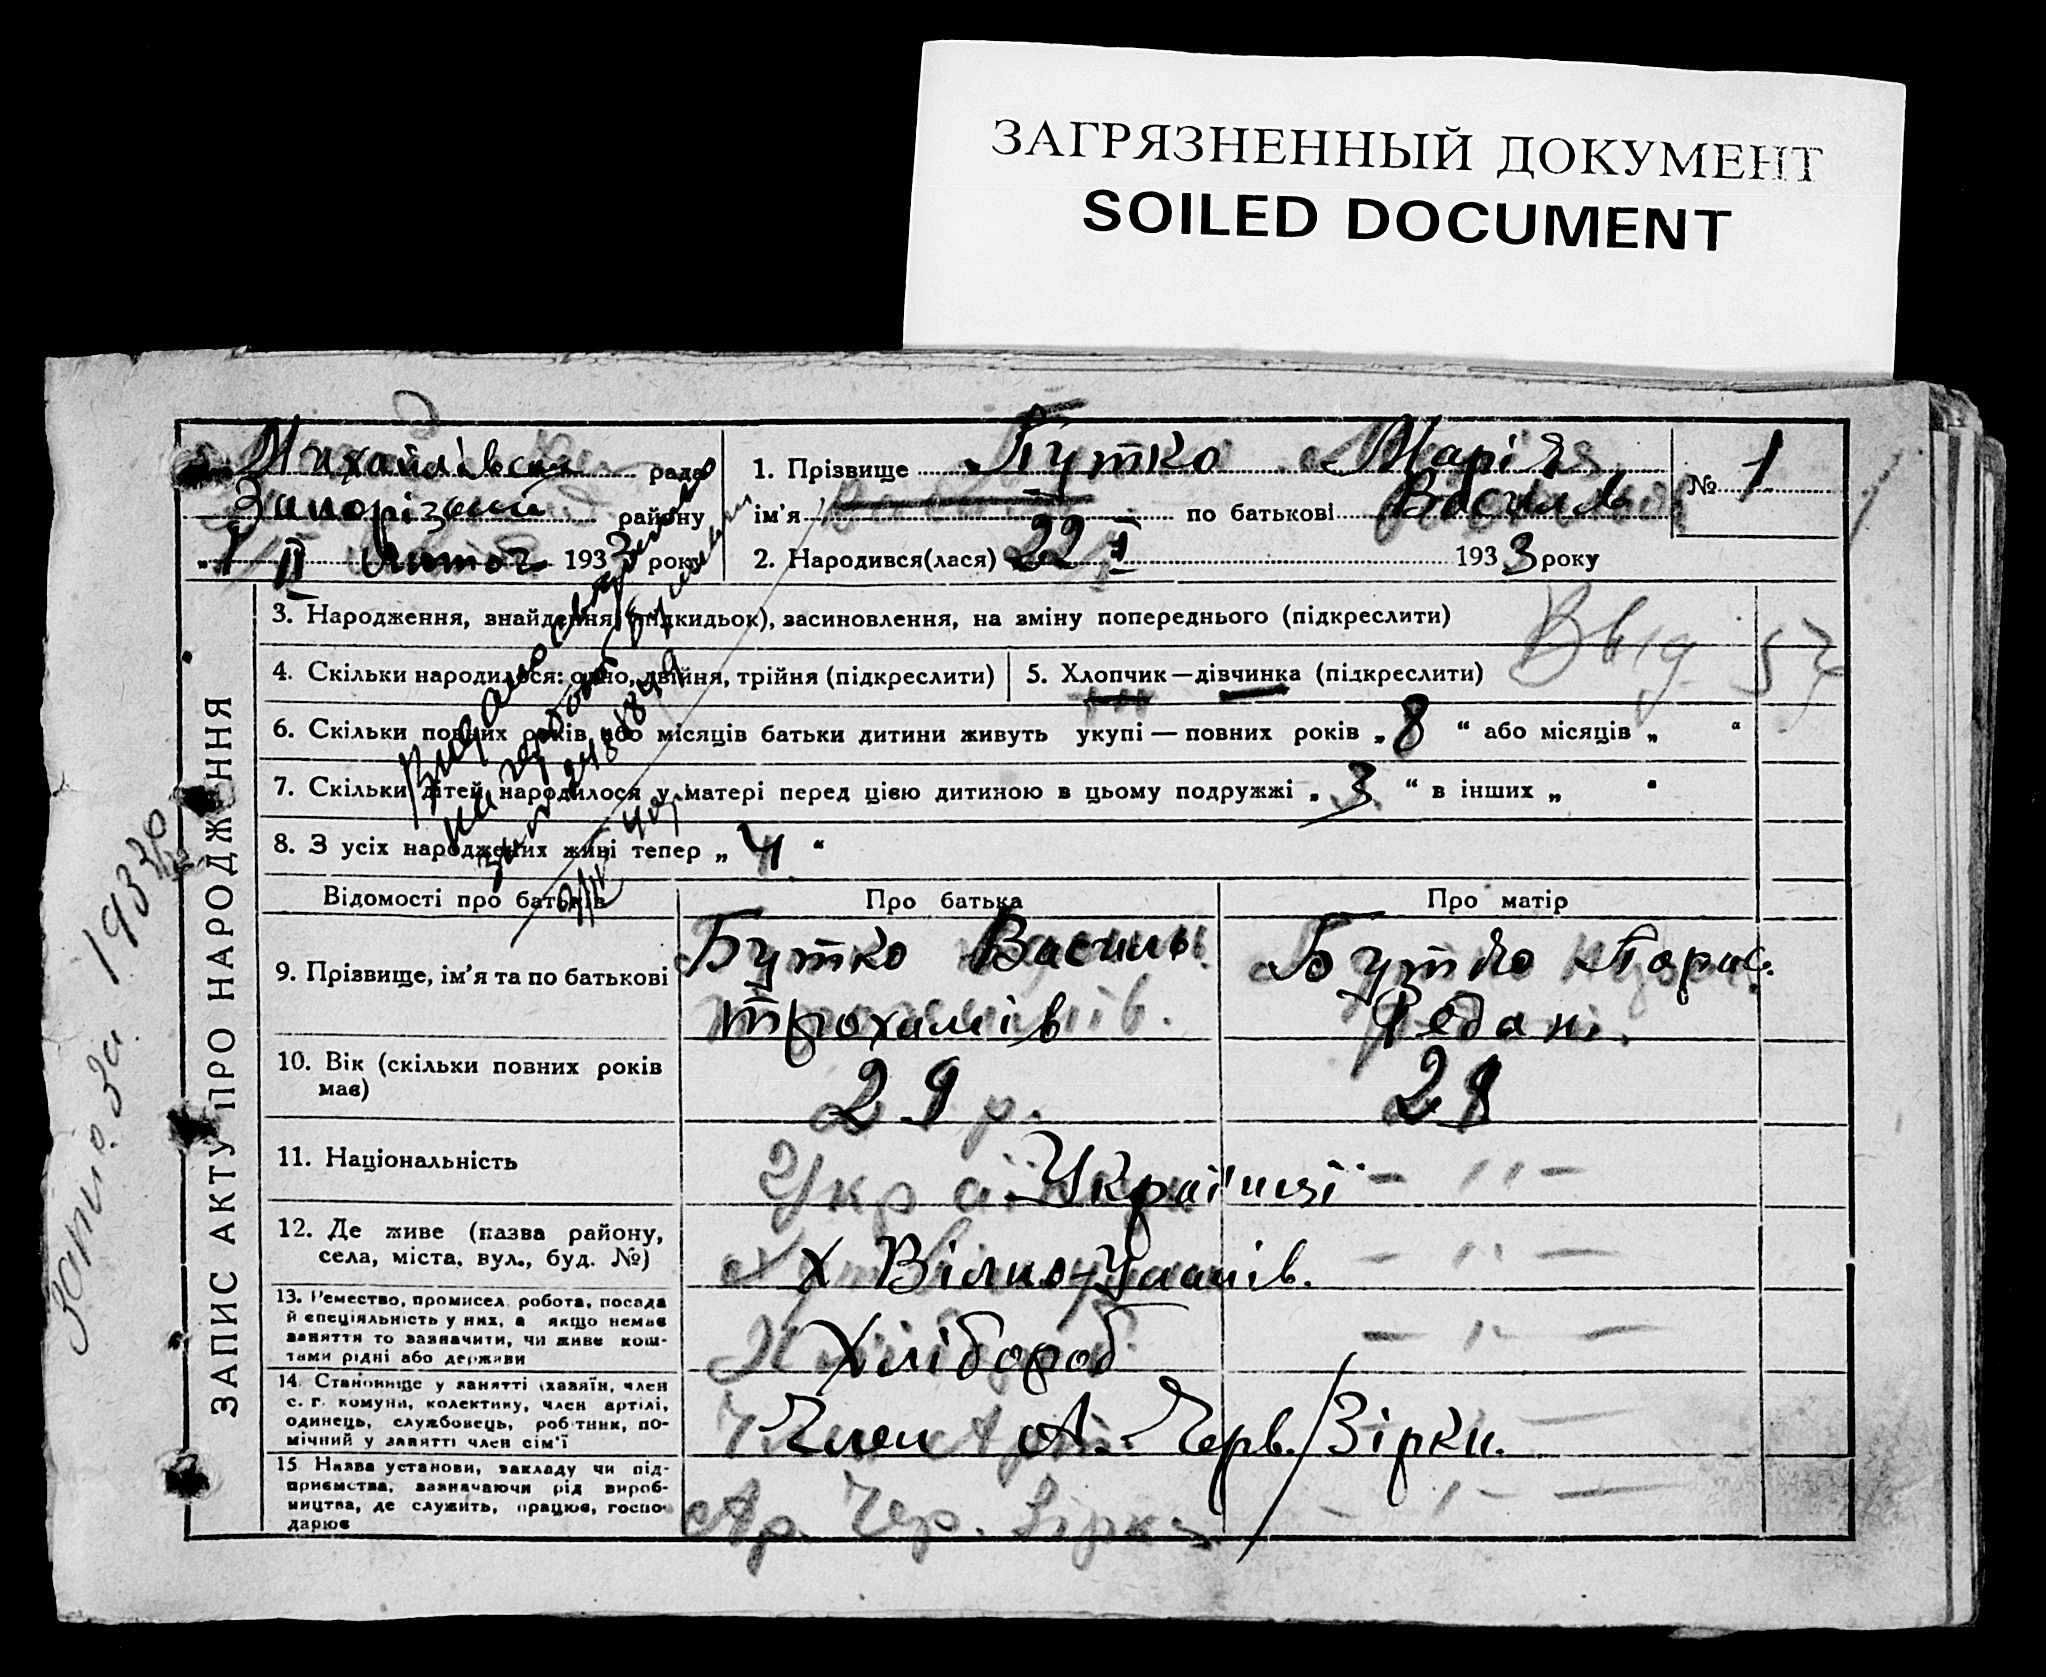 ЗАГРЯЗНЕННЫЙ ДОКУМЕНТ
SOILED DOCUMENT
Михайлівська рада
Запорізький району
„1 II лютог 1933 року
1. Прізвище Бутко Марія
ім'я по батькові Василів
2. Народився(лася) 22 I 1933 року
№ 1
ЗАПИС АКТУ ПРО НАРОДЖЕННЯ
3. Народження, знайдення (підкидьок), засиновлення, на зміну попереднього (підкреслити)
4. Скільки народилося: одно, двійня, трійня (підкреслити)
5. Хлопчик—дівчинка (підкреслити)
6. Скільки повних років або місяців батьки дитини живуть укупі — повних років „8“ або місяців „ “
7. Скільки дітей народилося у матері перед цією дитиною в цьому подружжі „3“ в інших „ “
8. З усіх народжених живі тепер „4“
Відомості про батьків
Про батька
Про матір
9. Прізвище, ім'я та по батькові
Бутко Василь
Трохимів
Бутко Парас.
Федан.
10. Вік (скільки повних років
має)
29 р.
28
11. Національність
Українці
— „ —
12. Де живе (назва району,
села, міста, вул., буд. №)
х Вільно-Уланів.
— „ —
13. Ремество, промисел робота, посада
й спеціяльність у них, а якщо немає
заняття то зазначити, чи живе кош-
тами рідні або держави
Хлібороб
— „ —
14. Становище у занятті (хазяїн, член
с. г. комуни, колективу, член артілі,
одинець, службовець, робітник, по-
мічний у занятті член сім'ї
Член А. Черв. Зірки.
15 Назва установи, закладу чи під-
приємства, зазначаючи рід вироб-
ництва, де служить, працює, госпо-
дарює
Ар. Чер. Зірка
— „ —